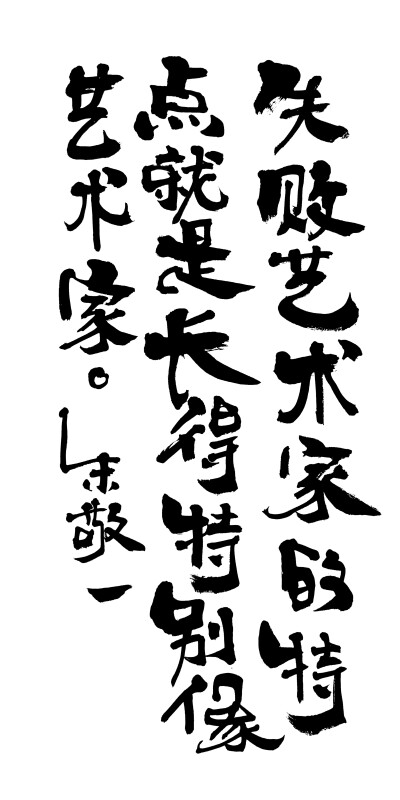 失败艺术家的特
点就是长得特别像
艺术家。
朱敬一